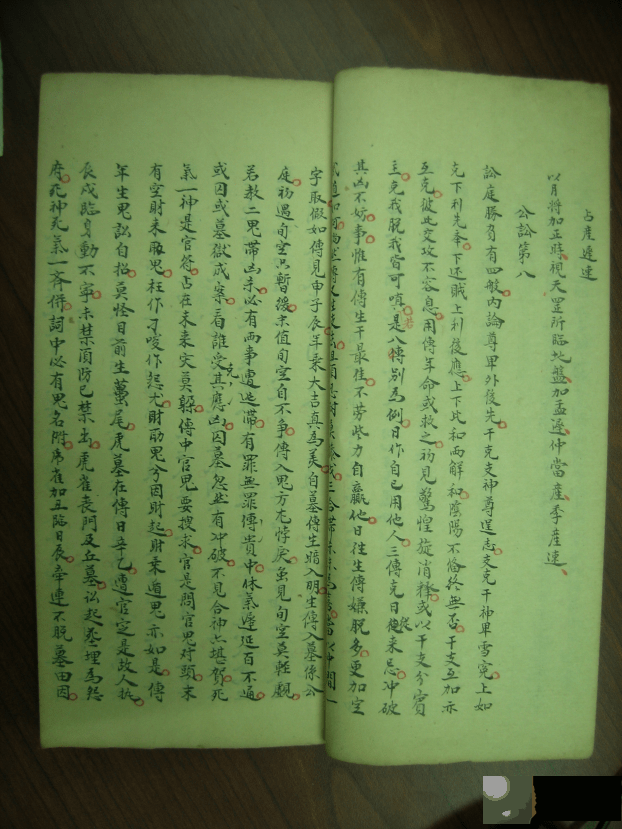 占產遲速
以月將加正時視天罡所臨地盤加孟遲仲當產季產速
公訟第八
訟庭勝負有四般內論尊卑外後先干克支神尊逞志支克干神卑雪寃上如
克下利先奉下还賊上利後應上下比和兩解和陰陽不偹終無否干支互加亦
互克彼此交攻不容息用傳年命或救之初見驚惶旋消釋或以干支分賓
主克我脫我皆可嗔是八傳別為例日作自己用他人三傳克日從來忌冲破
其凶不妨事惟有傳生干最佳不劳些力自贏他日往生傳嫌脫多更加空
字取假如傳見申子辰年乘大吉真為美自墓傳生暗入明生傳入墓像公
庭初遇旬空只暫後末值旬空自不爭傳入鬼方尤悖戾虽見旬空莫輕覷
若赦二鬼帶凶未必有兩事遭迍滯有罪無罪傳貴中休氣遲延百不通
或因或墓獄或案看誰受其應凶囚墓忽然有冲破不見合神亡堪賀死
氣一神是官符占在未來灾莫躱傳中官鬼要搜求官是問官鬼对頭末
有空財未販鬼枉作刁唆作怨尤財助鬼兮因財起財乘遁鬼亦如是傳
年生鬼訟自招莫怪日前生蠆尾虎墓在傳日辛乙遭官定是故人执
辰戌臨身動不寧未禁須防已禁出虎雀丧門及丘墓訟起塟埋為怨
府死神死氣一斉併詞中必有鬼名附常雀加丑臨日辰牵連不脫墓田因